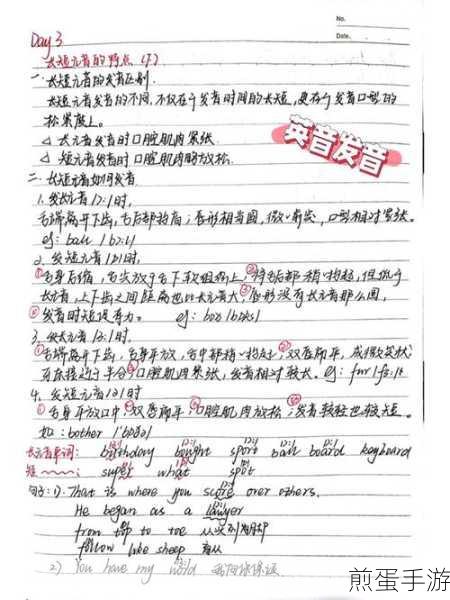 No.
Date.
Day 3
长短元音的特点（下）
一、长短元音的发音区别.
长短元音发音的不同，不仅在于发音时间的长短，更在于发音口型的
松紧度上。
长元音发音时口腔肌肉紧张.
短元音发音时口腔肌肉略放松.
英音发音
二、长短元音如何发音
1. 发长元音 时,
舌端离开下齿,舌后部抬高;唇形相当圆,微 突,口型相对紧张.
eg: ball
2. 发短元音 时,
①舌身后缩,舌尖 下软组织上,②将舌后部稍抬起,但低于
长元音,上下齿之间距离也比长元音大④唇形没有长元音那么圆,
⑤发音时短促有力. eg: box
3. 发长元音 时
①舌端离开下齿,舌身平放,舌中部稍抬起,双唇扁平,成微笑状
牙床接近于半合,口腔肌肉紧张,发音相对较长. eg: fur
4. 发短元音 时
舌身平放口中,双唇扁平,口腔肌肉放松,发音较轻也较短.
如: bother
长元音单词: birthday bought sport ball board keyboard
短 : super what spot
句子: 1). That is where you score over others.
He began as a lawyer
from top to toe 从头到脚
follow like sheep 盲从
2) You have my word 我向你保证
煎蛋手游